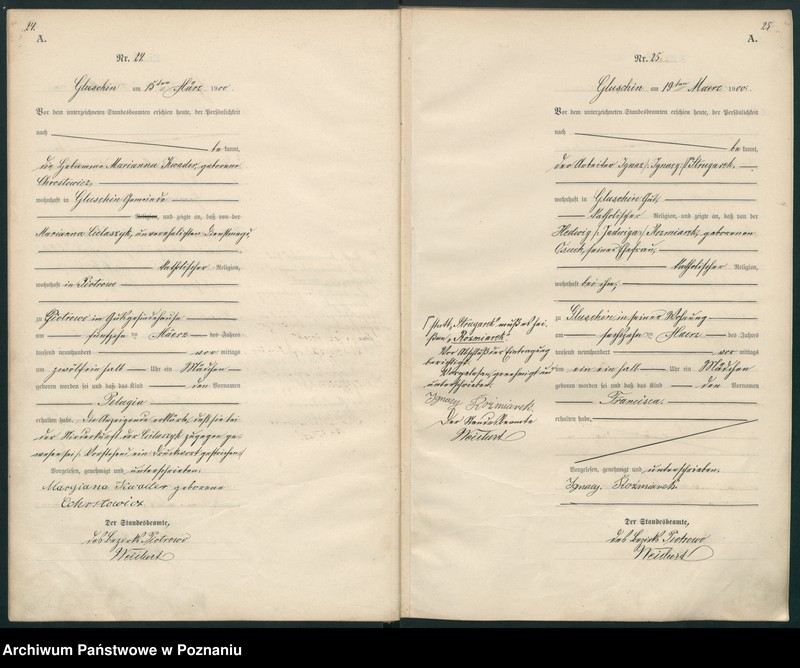 24.
A.
Nr. 24.
Gluschin am 15ten März 1900.
Vor dem unterzeichneten Standesbeamten erschien heute, der Persönlichkeit
nach
be kannt,
die Hebamme Marianna Kwader, geborene
Chrostowicz,
wohnhaft in Gluschin Gemeinde
Religion, und zeigte an, daß von der
Marianna Cielaszyk, unverehelichten Dienstmagd,
katholischer Religion,
wohnhaft in Piotrowo
zu Piotrowo im Gutsgesindehause
am fünfzehn ten Maerz des Jahres
tausend neunhundert vor mittags
um zwölf ein halb Uhr ein Mädchen
geboren worden sei und daß das Kind den Vornamen
Pelagia
erhalten habe. Die Anzeigende erklärte, daß sie bei
der Niederkunft der Cielaszyk zugegen ge-
wesen sei. Vorstehend ein Druckwort gestrichen.
Vorgelesen, genehmigt und unterschrieben.
Maryiana Kwader geborene
Chrostowicz
Der Standesbeamte,
des Bezirks Piotrowo
Weichert
25
A.
Nr. 25.
Gluschin am 19ten Maerz 1900.
Vor dem unterzeichneten Standesbeamten erschien heute, der Persönlichkeit
nach
be kannt,
der Arbeiter Ignaz /: Ignacy :/ Strugarek,
wohnhaft in Gluschin Gut,
katholischer Religion, und zeigte an, daß von der
Hedwig /: Jadwiga :/ Rozmiarek, geborenen
Osuch, seiner Ehefrau,
katholischer Religion,
wohnhaft bei ihm,
zu Gluschin in seiner Wohnung
am sechzehn ten Maerz des Jahres
tausend neunhundert vor mittags
um ein ein halb Uhr ein Mädchen
geboren worden sei und daß das Kind den Vornamen
Francisca.
erhalten habe,
Vorgelesen, genehmigt und unterschrieben.
Ignacy Rozmiarek
Der Standesbeamte,
des Bezirks Piotrowo
Weichert
statt "Strugarek" muß es hei-
ßen "Rozmiarek"
Vor Abschluß der Eintragung
berichtigt.
Vorgelesen, genehmigt und
unterschrieben.
Ignacy Rozmiarek
Der Standesbeamte
Weichert
Archiwum Państwowe w Poznaniu